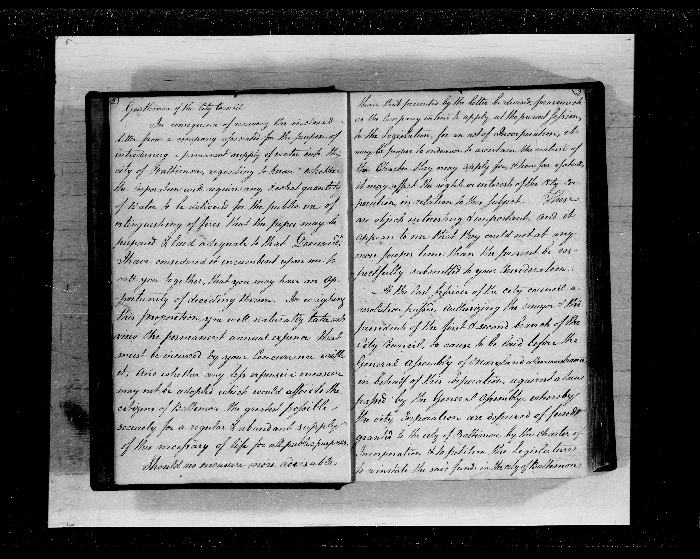 Gentlemen of the City Council
In consequence of receiving the enclosed
letter from a company associated for the purpose of
introducing a permanent supply of water into the
city of Baltimore, requesting to know whether
the corporation will require any & what quantity
of Water to be delivered for the public use of
extinguishing of fires that the pipes may be
prepared & laid adequate to that Demand,
I have considered it incumbent upon me to
call you together, that you may have an op-
portunity of deciding thereon. In weighing
this proposition you will naturally take into
view the permanent annual expence that
must be incurred by your Concurrence with
it, And whether any less expensive measure
may not be adopted which would afford to the
citizens of Baltimore the greatest possible
security for a regular & abundant supply
of this necessary of life for all public purposes.
Should no measure more advisable,
than that presented by the letter be devised, forasmuch
as the Company intend to apply, at the present session,
to the Legislature, for an act of Incorporation, it
may be proper to endeavor to ascertain the nature of
the Charter they may apply for, & how far
it may affect the rights or interests of the City Cor-
poration, in relation to this subject. These
are objects interesting & important, and it
appears to me that they could not at any
more proper time than the present be res-
pectfully submitted to your Consideration.
At the last session of the city council a
resolution passed, authorizing the mayor & the
presidents of the first & second branch of the
City Council, to cause to be laid before the
General Assembly of Maryland a Remonstrance
in behalf of this Corporation, against a law
passed by the General Assembly, whereby
the city Corporation are deprived of funds
granted to the city of Baltimore by the charter of
Incorporation & to petition the Legislature
to reinstate the said funds in the city of Baltimore